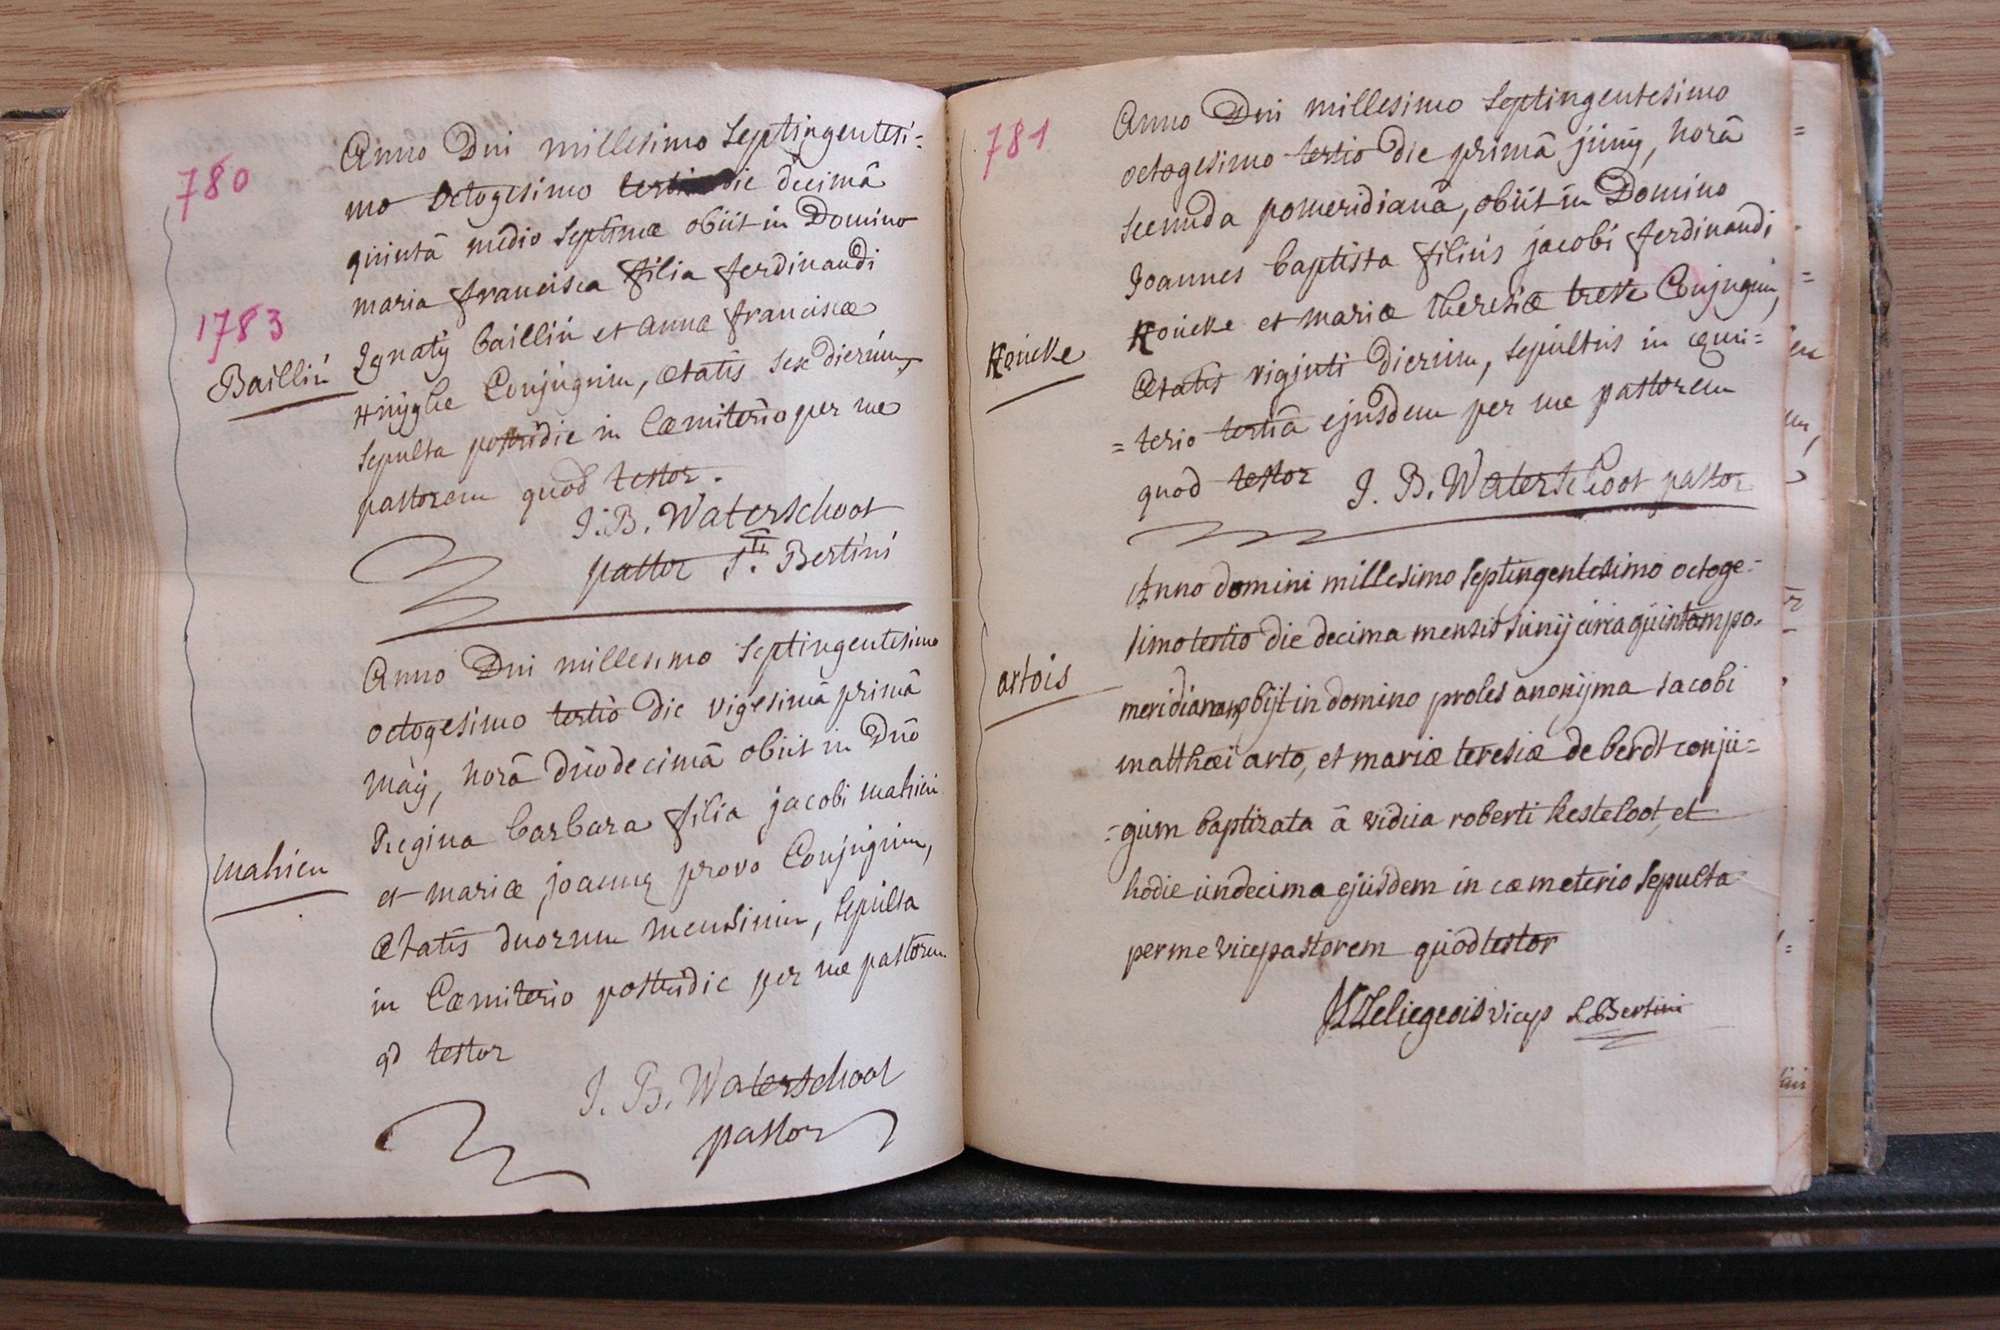 780
1783
Anno Dni millesimo septingentesi=
mo octogesimo tertio die decimâ
quintâ medio septimæ obiit in Domino
maria francisca filia ferdinandi
Bailliú
Ignatÿ Bailliú et annæ franciscæ
Conjúgúm, ætatis sex dierúm,
sepulta postridie in Cæmiterio per me
pastorem quod testor.
J. B. Waterschoot
pastor Sti Bertini
Anno Dni millesimo septingentesimo
octogesimo tertio die vigesimâ primâ
Maÿ, horâ dúodecimâ obiit in Dno
Regina barbara filia jacobi mahieu
mahieu
et mariæ joannæ provo Conjúgúm,
ætatis duorum mensium, sepulta
in Cæmiterio postridie per me pastorem
qd testor
J. B. Waterschoot
pastor
781
Anno Dni millesimo septingentesimo
octogesimo tertio die primâ junÿ, horâ
secunda pomeridianâ, obiit in Domino
Joannes baptista filius jacobi ferdinandi
Houcke
Houcke et mariæ theresiæ Conjugum,
ætatis viginti dierúm, sepultus in cæmi=
=terio tertiâ ejusdem per me pastorem
quod testor J. B. Waterschoot pastor
Anno domini millesimo septingentesimo octoge=
simo tertio die decima mensis Junij circa quintam po-
artois
meridianam obijt in domino proles anonijma Jacobi
matthæi arto, et mariæ teresiæ de berdt conjú=
=gum baptizata â vidúa roberti kesteloot, et
hodie úndecima ejúsdem in cæmeterio sepulta
per me vicepastorem quod testor
Leliegeois vicep S. Bertini